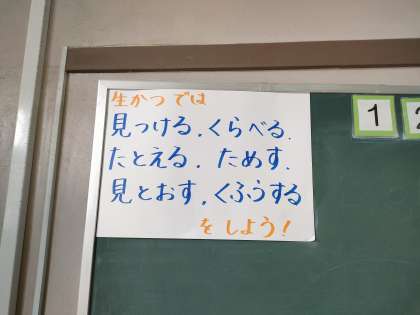 生かつでは
見つける.くらべる.
たとえる.ためす.
見とおす.くふうする
をしよう!
1